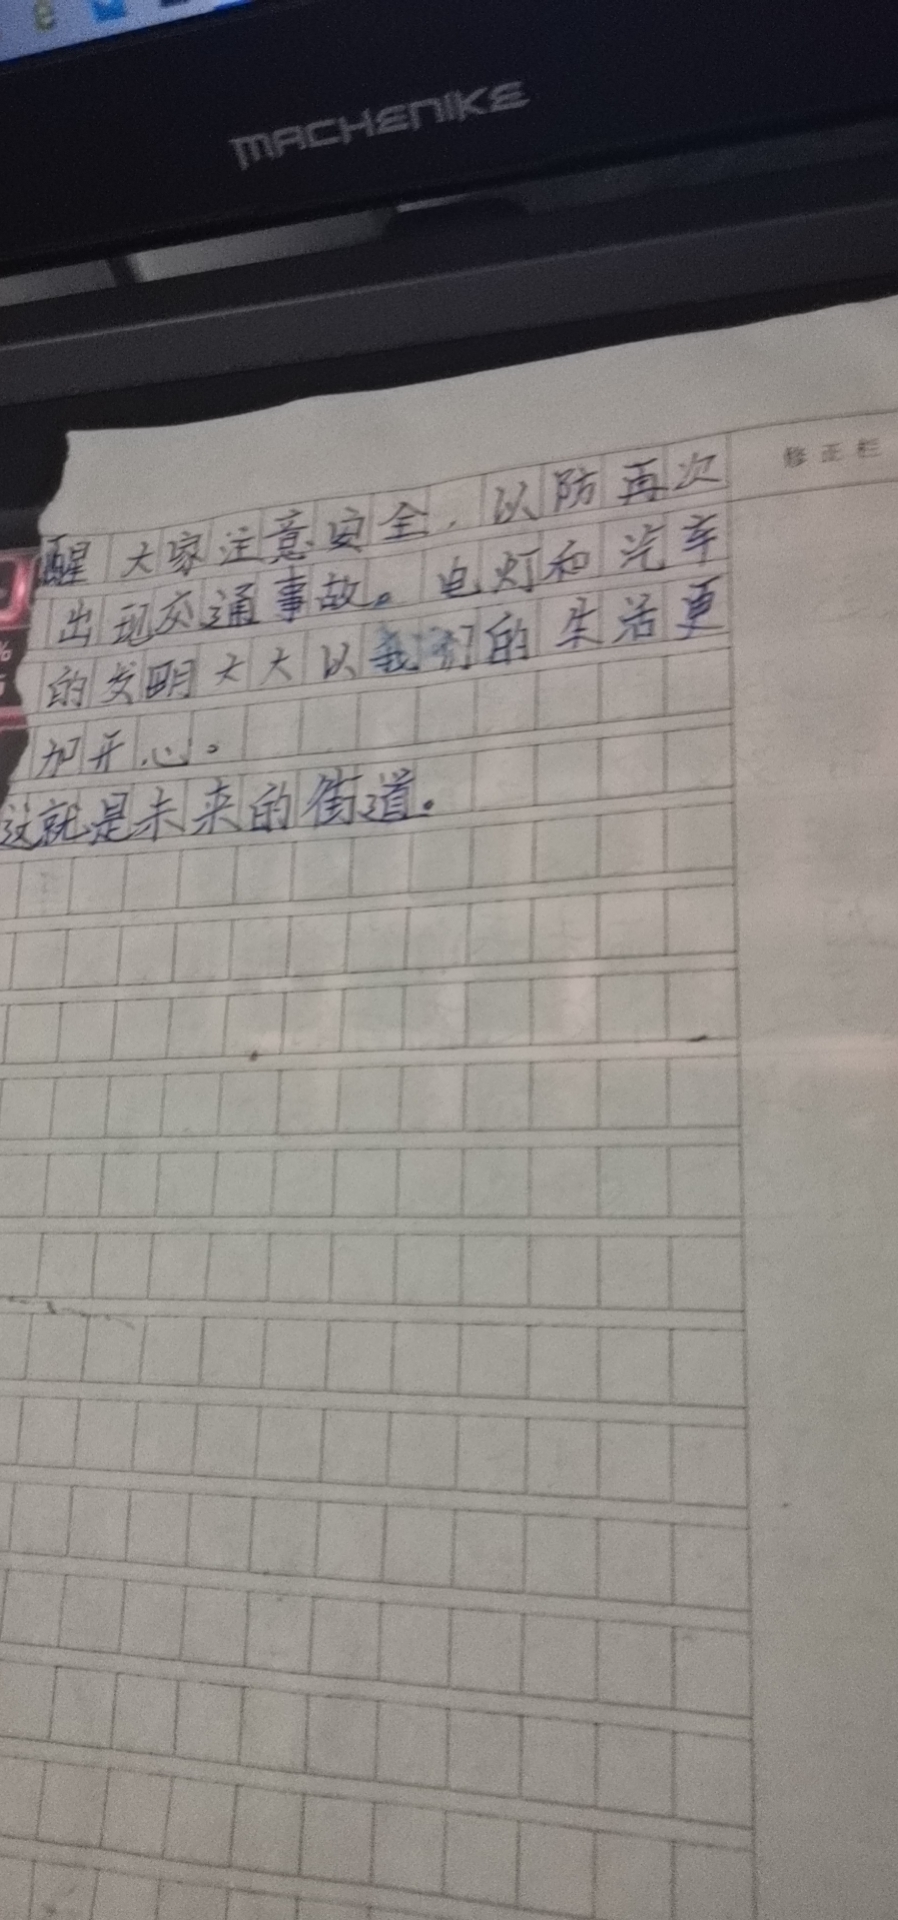 MACHENIKE
修正栏
醒大家注意安全，以防再次
出现交通事故。电灯和汽车
的发明大大以我们的生活更
加开心。
这就是未来的街道。